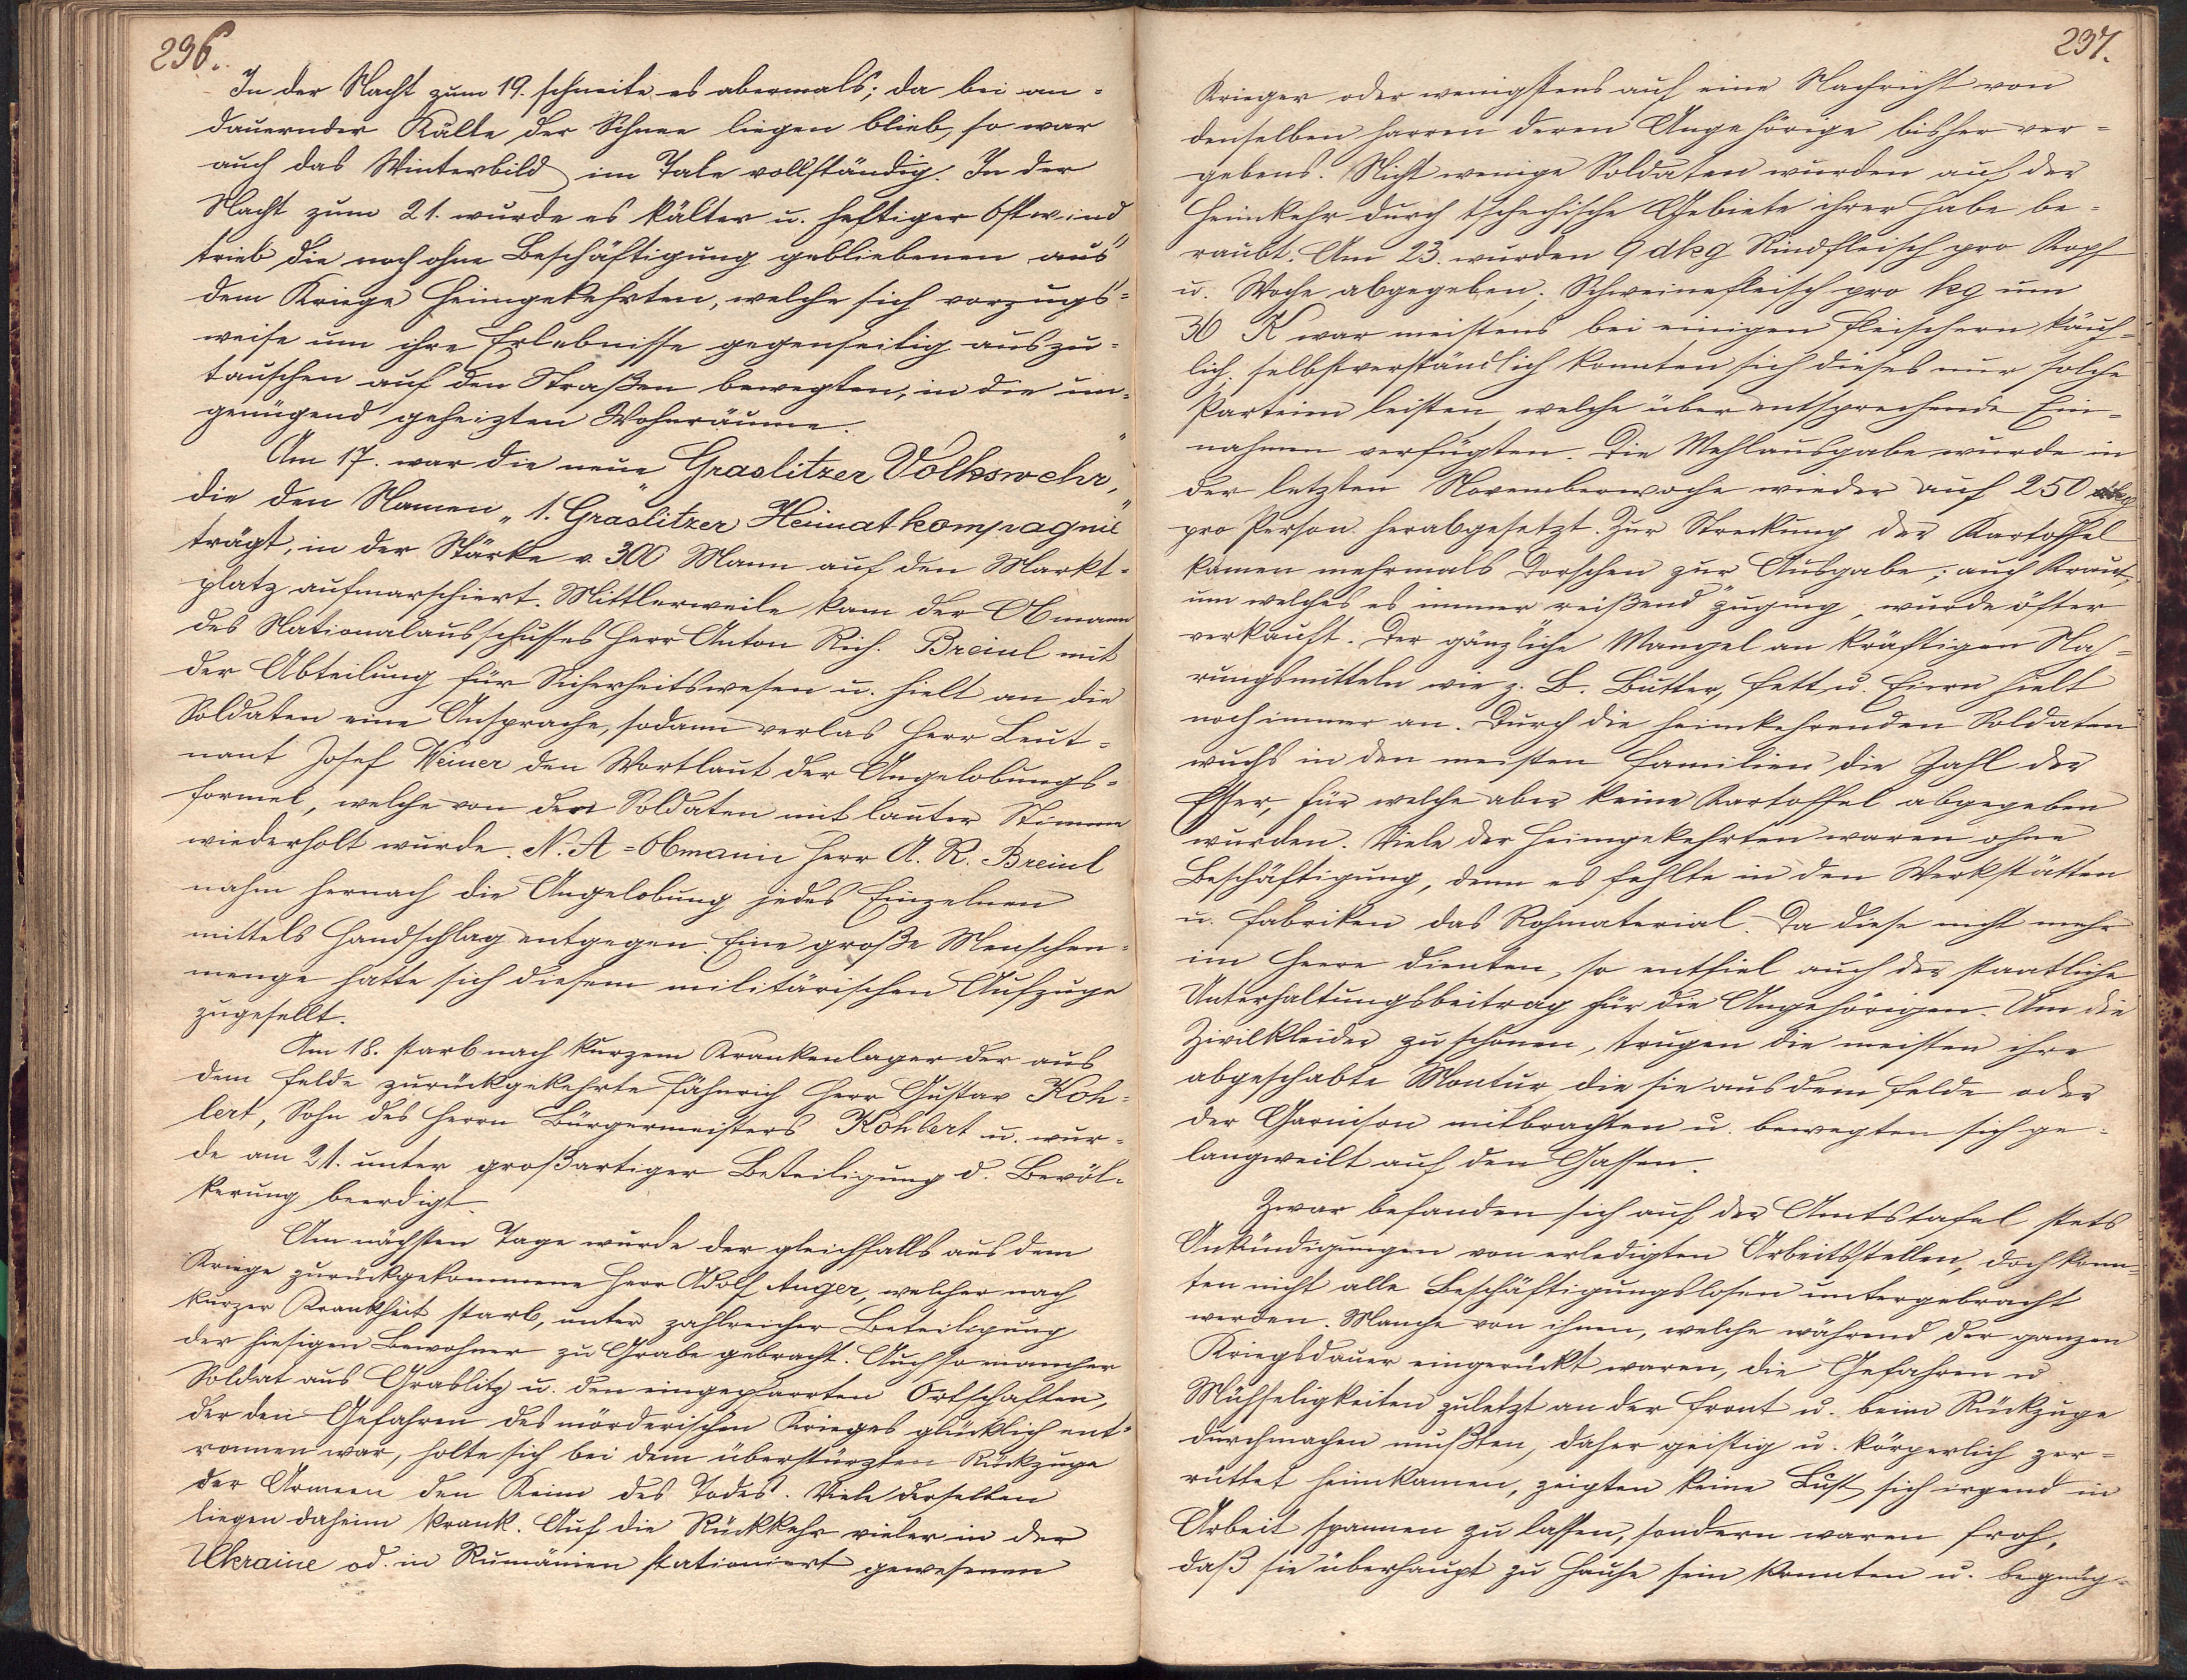 296.
In der Nacht zum 19. schneite es abermals; da bei an-
dauernder Kälte der Schnee liegen blieb, so war
auch das Winterbild im Tale vollständig. In der
Nacht zum 21. wurde es kälter u. heftiger Ostwind
trieb die noch ohne Beschäftigung gebliebenen aus
dem Kriege Heimgekehrten, welche sich vorzugs-
weise um ihre Erlebnisse gegenseitig auszu-
tauschen auf den Straßen bewegten, in die un-
genügend geheizten Wohnräume.
Am 17. war die neue „Graslitzer Volkswehr“,
die den Namen „1. Graslitzer Heimatkompagnie“
trägt, in der Stärke v. 300 Mann auf den Markt-
platz aufmarschiert. Mittlerweile kam der Obmann
des Nationalausschusses Herr Anton Rich. Breinl mit
der Abteilung für Sicherheitswesen u. hielt an die
Soldaten eine Ansprache, sodann verlas Herr Leut-
nant Josef Weiner den Wortlaut der Angelobungs-
formel, welche von den Soldaten mit lauter Stimme
wiederholt wurde. N. A-Obmann Herr A. R. Breinl
nahm hernach die Angelobung jedes Einzelnen
mittels Handschlag entgegen. Eine große Menschen-
menge hatte sich diesem militärischen Aufzuge
zugesellt.
Am 18. starb nach kurzem Krankenlager der aus
dem Felde zurückgekehrte Fähnrich Herr Gustav Koh-
lert, Sohn des Herrn Bürgermeisters Kohlert u. wur-
de am 21. unter großartiger Beteiligung d. Bevöl-
kerung beerdigt.
Am nächsten Tage wurde der gleichfalls aus dem
Kriege zurückgekommene Herr Adolf Anger, welcher nach
kurzer Krankheit starb, unter zahlreicher Beteiligung
der hiesigen Bewohner zu Grabe gebracht. Auch so mancher
Soldat aus Graslitz u. den eingepfarrten Ortschaften,
der den Gefahren des mörderischen Krieges glücklich ent-
ronnen war, holte sich bei dem überstürzten Rückzuge
der Armeen den Keim des Todes. Viele derselben
liegen daheim krank. Auf die Rückkehr vieler in der
Ukraine od. in Rumänien stationiert gewesenen
237.
Krieger oder wenigstens auf eine Nachricht von
denselben harren deren Angehörige bisher ver-
gebens. Nicht wenige Soldaten wurden auf der
Heimkehr durch tschechische Gebiete ihrer Habe be-
raubt. Am 23. wurden 9 dkg Rindfleisch pro Kopf
u. Woche abgegeben; Schweinefleisch pro kg um
36 K war meistens bei einigen Fleischern käuf-
lich, selbstverständlich konnten sich dieses nur solche
Parteien leisten, welche über entsprechende Ein-
nahmen verfügten. Die Mehlausgabe wurde in
der letzten Novemberwoche wieder auf 250
pro Person herabgesetzt. Zur Streckung der Kartoffel
kamen mehrmals Dorschen zur Ausgabe; auch Kraut,
um welches es immer „reißend“ zuging, wurde öfter
verkauft. Der gänzliche Mangel an kräftigen Nah-
rungsmitteln wie z. B. Butter, Fett u. Eiern hielt
noch immer an. Durch die heimkehrenden Soldaten
wuchs in den meisten Familien die Zahl der
Esser, für welche aber keine Kartoffel abgegeben
wurden. Viele der Heimgekehrten waren ohne
Beschäftigung, denn es fehlte in den Werkstätten
u. Fabriken das Rohmaterial. Da diese nicht mehr
im Heere dienten, so entfiel auch der staatliche
Unterhaltungsbeitrag für die Angehörigen. Um die
Zivilkleider zu schonen, trugen die meisten ihre
abgeschabte Montur, die sie aus dem Felde oder
der Garnison mitbrachten u. bewegten sich ge-
langweilt auf den Gassen.
Zwar befanden sich auf der Amtstafel stets
Ankündigungen von erledigten Arbeitsstellen, doch konn-
ten nicht alle Beschäftigungslosen untergebracht
werden. Manche von ihnen, welche während der ganzen
Kriegsdauer eingerückt waren, die Gefahren u.
Mühseligkeiten zuletzt an der Front u. beim Rückzuge
durchmachen mußten, daher geistig u. körperlich zer-
rüttet heimkamen, zeigten keine Lust, sich irgend in
Arbeit spannen zu lassen, sondern waren froh,
daß sie überhaupt zu Hause sein konnten u. begnüg-